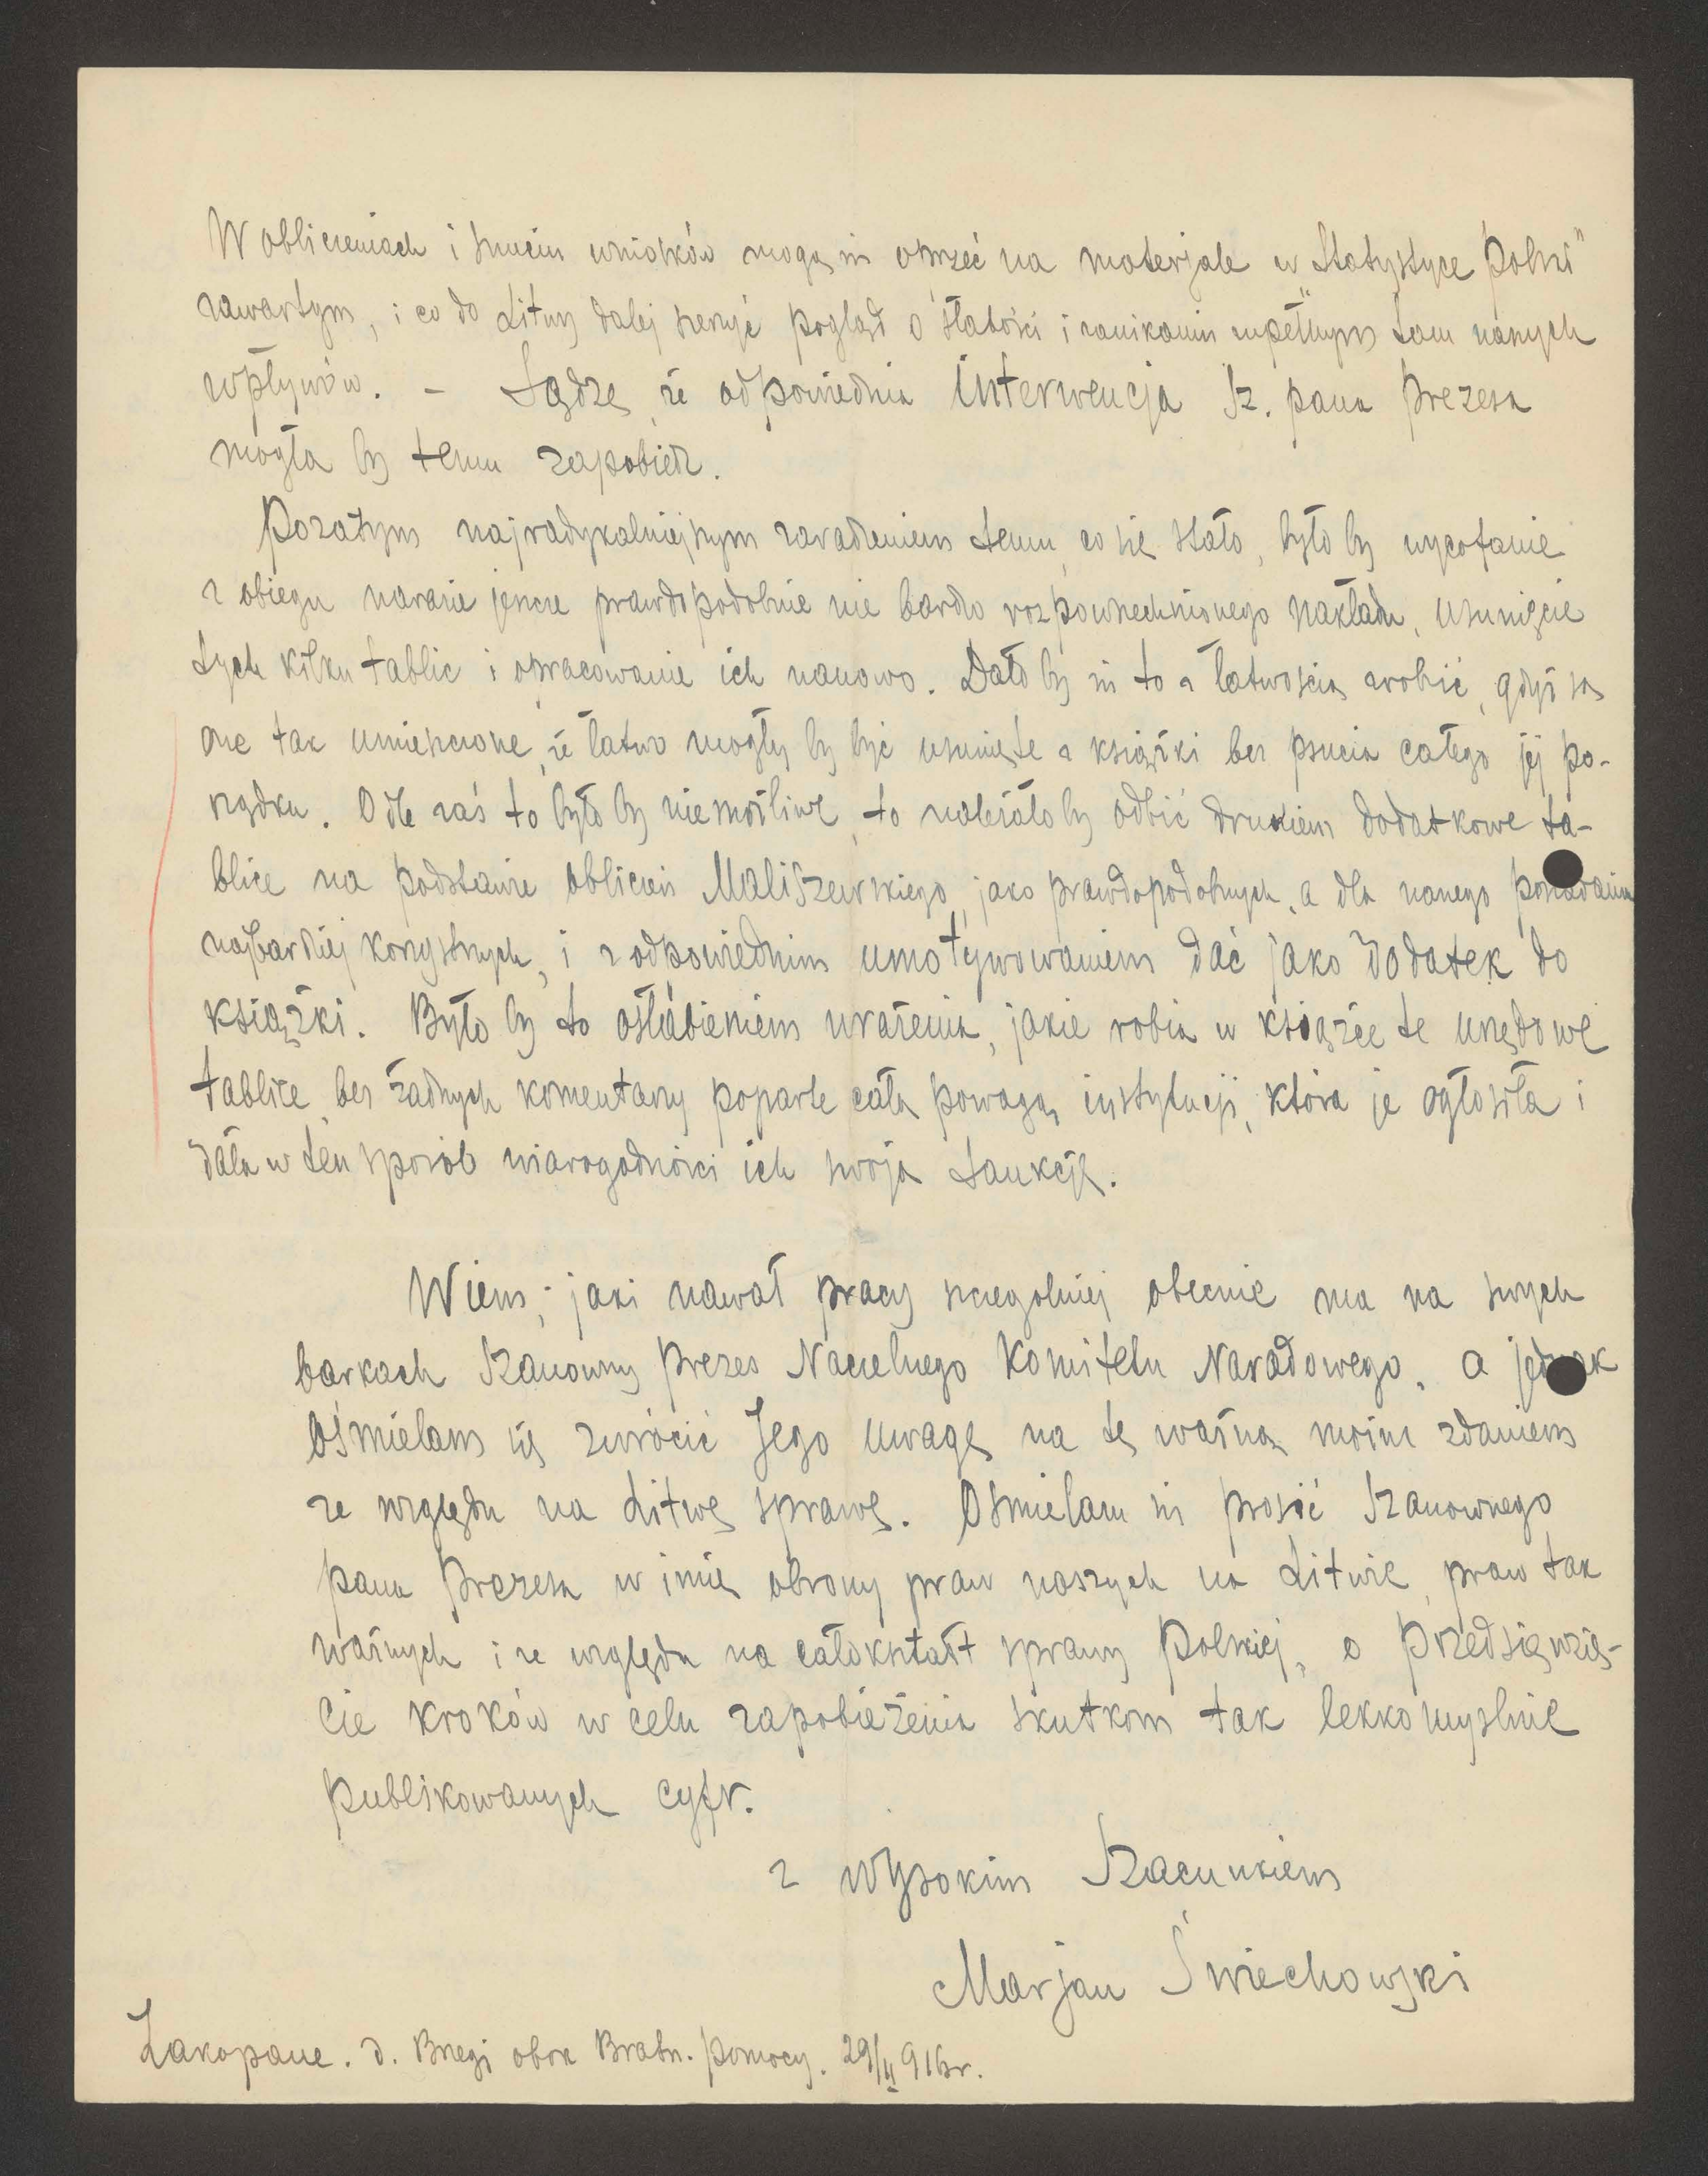 W obliczeniach i snuciu wniosków mogą się oprzeć na materjale w „Statystyce Polski"
zawartym, i co do Litwy dalej szerzyć pogląd o słabości i zanikaniu zupełnym tam naszych
wpływów. – Sądzę, że odpowiednia interwencja Sz. pana prezesa
mogła by temu zapobiedz.
Pozatym najradykalniejszym zaradzeniem temu, co się stało, było by wycofanie
z obiegu narazie jeszcze prawdopodobnie nie bardzo rozpowszechnionego nakładu, usunięcie
tych kilku tablic i opracowanie ich nanowo. Dało by się to z łatwością zrobić, gdyż są
one tak umieszczone, że łatwo mogły by być usunięte z książki bez psucia całego jej po-
rządku. O ile zaś to było by niemożliwe, to należało by odbić drukiem dodatkowe ta-
blice na podstawie obliczeń Maliszewskiego, jako prawdopodobnych, a dla naszego posiadania
najbardziej korzystnych, i z odpowiednim umotywowaniem dać jako dodatek do
książki. Było by to osłabieniem wrażenia, jakie robią w książce te urzędowe
tablice, bez żadnych komentarzy poparte całą powagą instytucji, która je ogłosiła i
dała w ten sposób wiarogodności ich swoją sankcję.
Wiem, jaki nawał pracy szczególniej obecnie ma na swych
barkach Szanowny prezes Naczelnego Komitetu Narodowego, a jednak
ośmielam się zwrócić Jego uwagę na tę ważną moim zdaniem
ze względu na Litwę sprawę. Ośmielam się prosić Szanownego
pana prezesa w imię obrony praw naszych na Litwie, praw tak
ważnych i ze względu na całokształt sprawy polskiej, o przedsięwzię-
cie kroków w celu zapobieżenia skutkom tak lekkomyślnie
publikowanych cyfr.
z wysokim szacunkiem
Marjan Świechowski
Zakopane. d. Bregi obok Bratn. pomocy. 29/II 916 r.